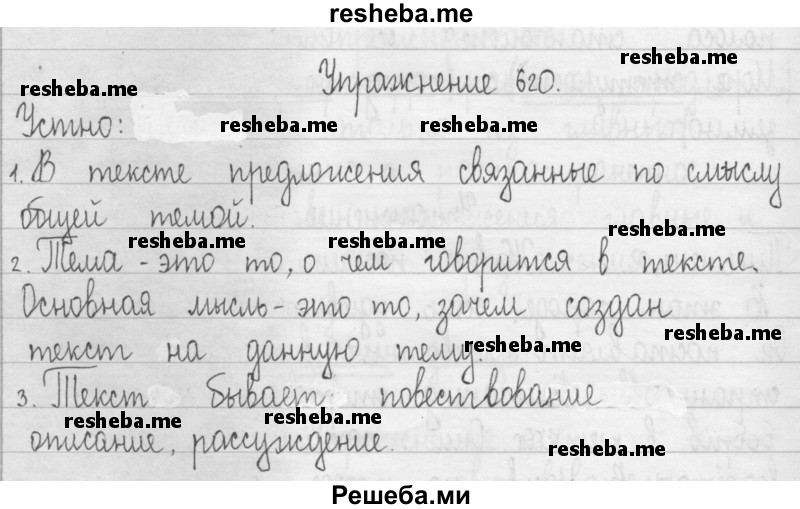 resheba.me
Упражнение 620.
resheba.me
resheba.me
Устно:
resheba.me
resheba.me
1. В тексте предложения связанные по смыслу
общей темой.
resheba.me
resheba.me
2. Тема - это то, о чем говорится в тексте.
Основная мысль - это то, зачем создан
resheba.me
текст на данную тему.
3. Текст бывает повествование
resheba.me
resheba.me
описание, рассуждение.
resheba.me
Решеба.ми